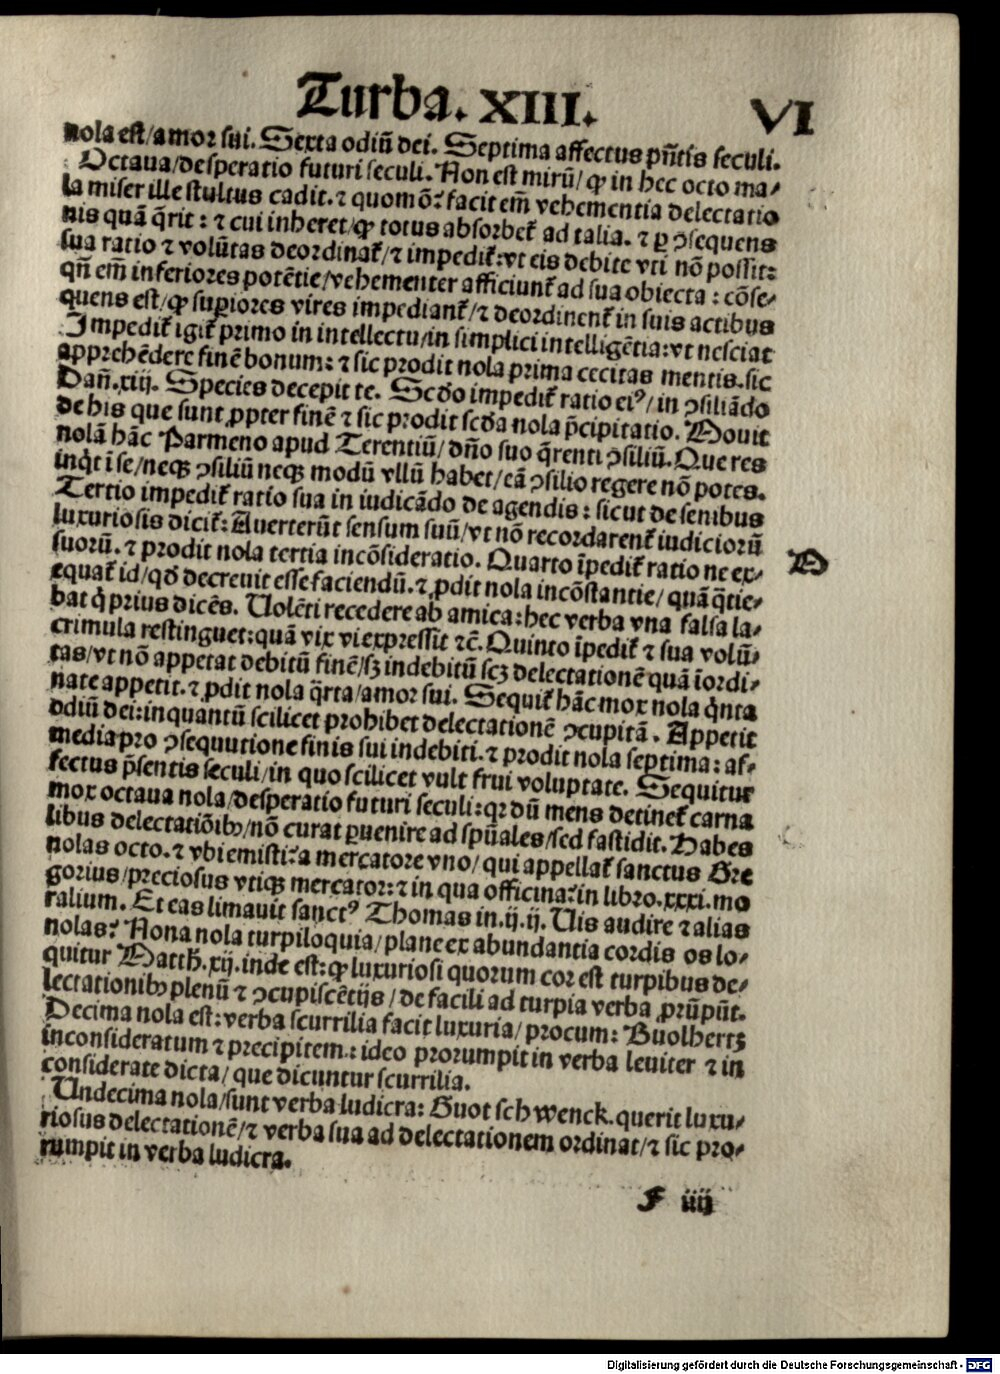 Turba. XIII. VI
nola est/amor sui. Sexta odiū dei. Septima affectus pñtis seculi.
Octaua/desperatio futuri seculi. Non est mirū/ ꝙ in hec octo ma/
la miser ille stultus cadit. ⁊ quomō? facit em̄ vehementia delectatio
nis quā q̄rit: ⁊ cui inheret/ꝙ totus absorbet᷑ ad talia. ⁊ ꝑ ꝯsequens
sua ratio ⁊ volūtas deordinat᷑/⁊ impedit᷑: vt eis debite vti nō possit:
qñ em̄ inferiores potētie/vehementer afficiunt᷑ ad sua obiecta: cōse/
quens est/ꝙ suꝑiores vires impediant᷑/⁊ deordinent᷑ in suis actibus
Impedit᷑ igit᷑ primo in intellectu/in simplici intelligētia: vt nesciat
apprehēdere finē bonum: ⁊ sic prodit nola prima cecitas mentis. sic
Dañ. xiij. Species decepit te. Scd̄o impedit᷑ ratio eiꝰ/ in ꝯsiliādo
de his que sunt ꝓpter finē ⁊ sic prodit scd̄a nola p̄cipitatio. Mouit
nolā hāc Parmeno apud Terentiū/ dño suo q̄renti ꝯsiliū. Que res
inq̇t ī se/neqꝫ ꝯsiliū neqꝫ modū vllū habet/ eā ꝯsilio regere nō potes.
Tertio impedit᷑ ratio sua in iudicādo de agendis: sicut de senibus
luxuriosis dicit᷑: Auerterūt sensum suū/vt nō recordarent᷑ iudiciorū
suorū. ⁊ prodit nola tertia incōsideratio. Quarto īpedit᷑ ratio ne ex/
equat᷑ id/qd̄ decreuit esse faciendū. ⁊ ꝓdit nola incōstantie/ quā q̄tie/
bat q̇ prius dicēs. Uolēti recedere ab amica: hec verba vna falsa la/
crimula restinguet: quā vix vi expressit ⁊c̄. Quinto īpedit᷑ ⁊ sua volū/
tas/vt nō appetat debitū finē/sꝫ indebitū scꝫ delectationē quā īordi/
nate appetit. ⁊ ꝓdit nola q̄rta/amor sui. Sequit᷑ hāc mox nola q̇nta
odiū dei: inquantū scilicet prohibet delectationē ꝯcupitā. Appetit
media pro ꝯsequutione finis sui indebiti. ⁊ prodit nola septima: af/
fectus p̄sentis seculi/in quo scilicet vult frui voluptate. Sequitur
mox octaua nola/desperatio futuri seculi: qꝛ dū mens detinet᷑ carna
libus delectatiōibꝫ/nō curat ꝑuenire ad spūales/sed fastidit. Habes
nolas octo. ⁊ vbi emisti? a mercatore vno/ qui appellat᷑ sanctus Gre
gorius/preciosus vtiqꝫ mercator: ⁊ in qua officina? in libro. xxxi. mo
ralium. Et eas limauit sanctꝰ Thomas in. ij. ij. Uis audire ⁊ alias
nolas? Nona nola turpiloquia/ plane ex abundantia cordis os lo/
quitur Matth̄. xij. inde est: ꝙ luxuriosi quorum cor est turpibus de/
lectationibꝫ plenū ⁊ ꝯcupiscētijs/ de facili ad turpia verba ꝓrūpūt.
Decima nola est: verba scurrilia facit luxuria/ procum: Buolhertz
inconsideratum ⁊ precipitem: ideo prorumpit in verba leuiter ⁊ in
considerate dicta/ que dicuntur scurrilia.
Undecima nola/sunt verba ludicra: Guot schwenck. querit luxu/
riosus delectationē/⁊ verba sua ad delectationem ordinat/⁊ sic pro/
rumpit in verba ludicra.
D
F iiij
Digitalisierung gefördert durch die Deutsche Forschungsgemeinschaft - DFG